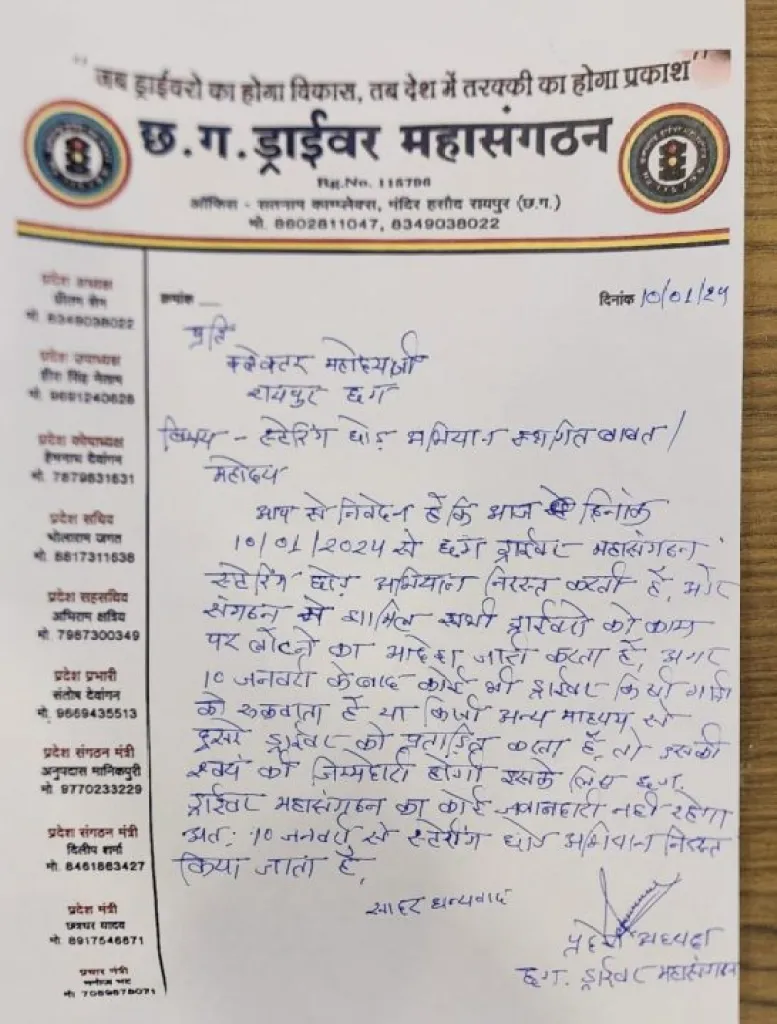 " जब ड्राईवरो का होगा विकास, तब देश में तरक्की का होगा प्रकाश "
छ.ग. ड्राईवर महासंगठन
Rg.No. 115796
ऑफिस - सतनाम काम्प्लेक्स, मंदिर हसौद रायपुर (छ.ग.)
मो. 8602811047, 8349038022
क्रमांक
दिनांक 10/01/24
प्रदेश अध्यक्ष
प्रीतम सेन
मो. 8349038022
प्रदेश उपाध्यक्ष
हीरा सिंह नेताम
मो. 9691240628
प्रदेश कोषाध्यक्ष
हेमनाथ देवांगन
मो. 7879831631
प्रदेश सचिव
भोलाराम जगत
मो. 8817311638
प्रदेश सहसचिव
अभिराम क्षत्रिय
मो. 7987300349
प्रदेश प्रभारी
संतोष देवांगन
मो. 9669435513
प्रदेश संगठन मंत्री
अनुपदास मानिकपुरी
मो. 9770233229
प्रदेश संगठन मंत्री
दिलीप शर्मा
मो. 8461863427
प्रदेश मंत्री
छत्रधर यादव
मो. 8917546671
प्रचार मंत्री
मनोज भट
मो. 7089878071
प्रति
कलेक्टर महोदय जी
रायपुर छग
विषय - स्टेरिंग छोड़ अभियान स्थगित बाबत /
महोदय
आप से निवेदन है कि आज दिनांक
10/01/2024 से छग ड्राईवर महासंगठन
स्टेरिंग छोड़ अभियान निरस्त करती है, और
संगठन में शामिल सभी ड्राईवरो को काम
पर लौटने का आदेश जारी करता है, अगर
10 जनवरी के बाद कोई भी ड्राईवर किसी गाड़ी
को रुकवाता है या किसी अन्य माध्यम से
दुसरे ड्राईवर को प्रताड़ित करता है, तो उसकी
स्वयं की जिम्मेदारी होगी इसके लिए छग.
ड्राईवर महासंगठन का कोई जवाबदारी नही रहेगा
अत: 10 जनवरी से स्टेरींग छोड़ अभियान निरस्त
किया जाता है,
सादर धन्यवाद
प्रदेश अध्यक्ष
छग. ड्राईवर महासंगठन